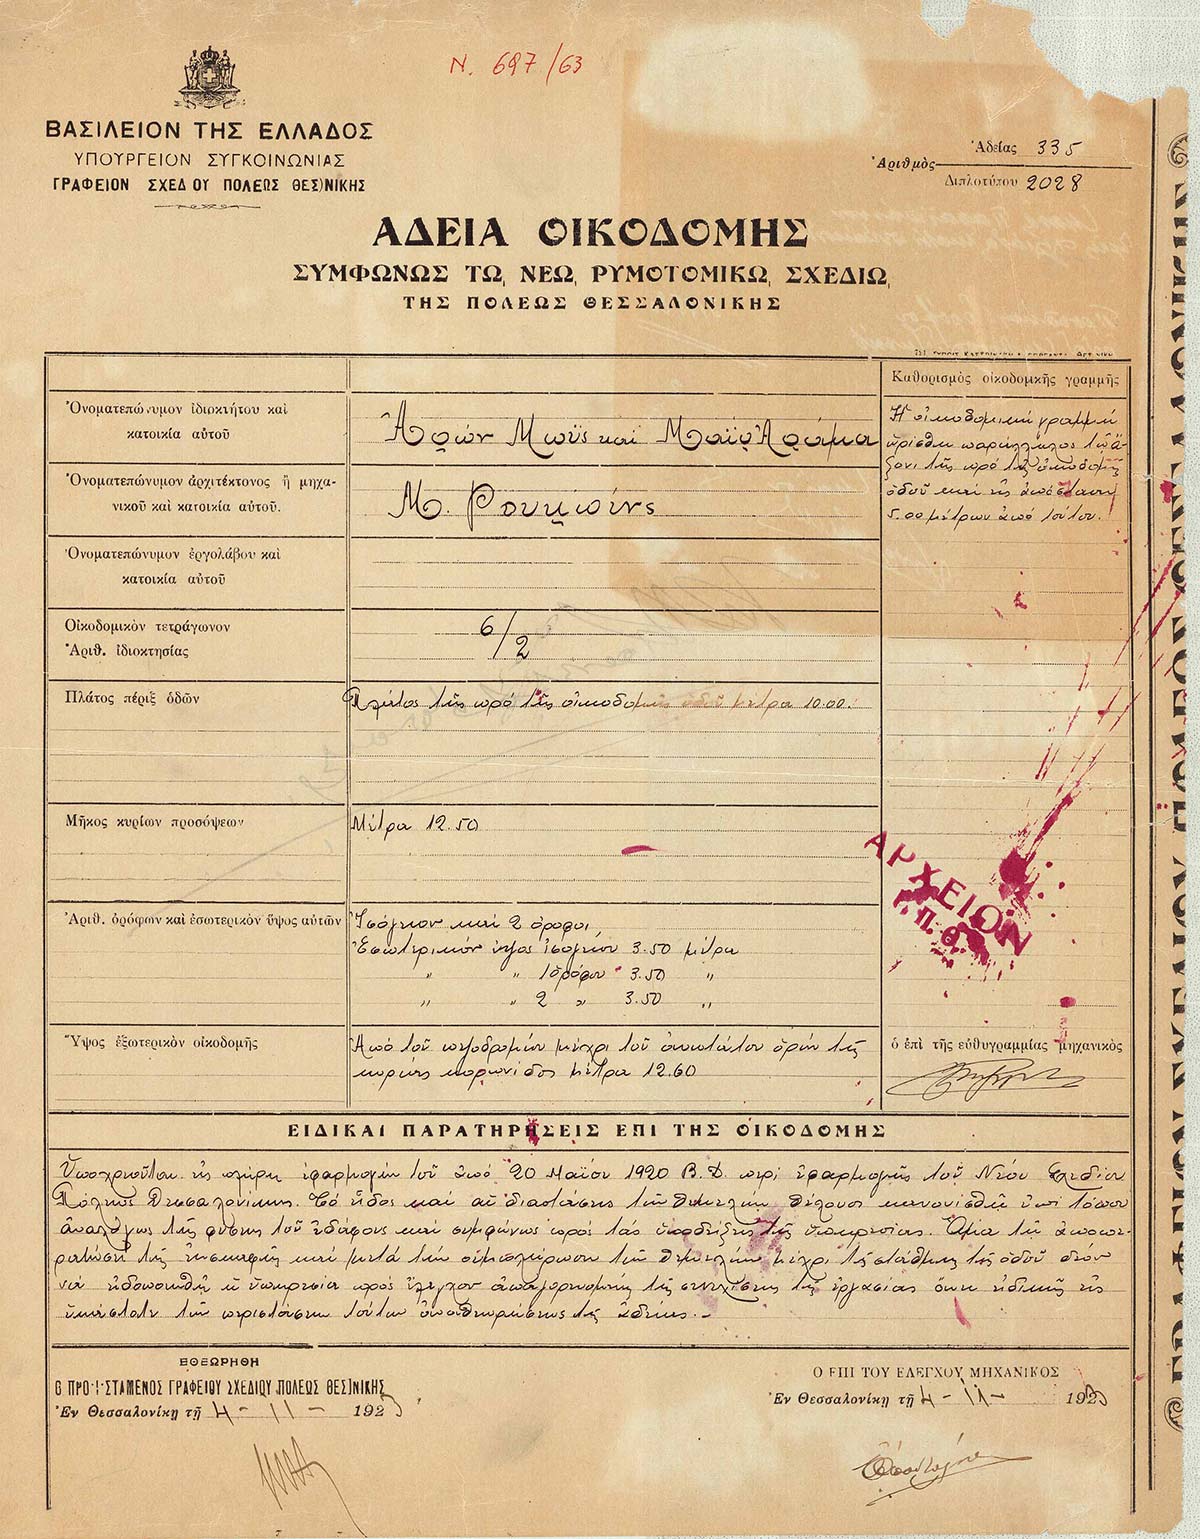 Ν. 697/63
ΒΑΣΙΛΕΙΟΝ ΤΗΣ ΕΛΛΑΔΟΣ
ΥΠΟΥΡΓΕΙΟΝ ΣΥΓΚΟΙΝΩΝΙΑΣ
ΓΡΑΦΕΙΟΝ ΣΧΕΔΟΥ ΠΟΛΕΩΣ ΘΕΣ)ΝΙΚΗΣ
Ἀριθμὸς Ἀδείας 335
Διπλοτύπου 2028
ΑΔΕΙΑ ΟΙΚΟΔΟΜΗΣ
ΣΥΜΦΩΝΩΣ Τῼ ΝΕῼ ΡΥΜΟΤΟΜΙΚῼ ΣΧΕΔΙῼ
ΤΗΣ ΠΟΛΕΩΣ ΘΕΣΣΑΛΟΝΙΚΗΣ
Καθορισμὸς οἰκοδομικῆς γραμμῆς
Ἡ οἰκοδομικὴ γραμμὴ
ὡρίσθη παράλληλος τῷ ἄ-
ξονι τῆς πρὸ τῆς οἰκοδομῆς
ὁδοῦ καὶ εἰς ἀπόστασιν
5.00 μέτρων ἀπὸ τούτου.
Ὀνοματεπώνυμον ἰδιοκτήτου καὶ
κατοικία αὐτοῦ
Ἀρὼν Μωῢς καὶ
Ὀνοματεπώνυμον ἀρχιτέκτονος ἢ μηχα-
νικοῦ καὶ κατοικία αὐτοῦ.
Μ.
Ὀνοματεπώνυμον ἐργολάβου καὶ
κατοικία αὐτοῦ
Οἰκοδομικὸν τετράγωνον
Ἀριθ. ἰδιοκτησίας
6/2
Πλάτος πέριξ ὁδῶν
Πλάτος τῆς πρὸ τῆς οἰκοδομῆς ὁδοῦ μέτρα 10.00.
Μῆκος κυρίων προσόψεων
Μέτρα 12.50
Ἀριθ. ὀρόφων καὶ ἐσωτερικὸν ὕψος αὐτῶν
Ἰσόγειον καὶ 2 ὄροφοι
Ἐσωτερικὸν ὕψος ἰσογείου 3.50 μέτρα
„ „ 1 ὀρόφου 3.50 „
„ „ 2 „ 3.50 „
Ὕψος ἐξωτερικὸν οἰκοδομῆς
Ἀπὸ τοῦ πεζοδρομίου μέχρι τοῦ ἀνωτάτου ὁρίου τῆς
κυρίας κορωνίδος μέτρα 12.60
ΑΡΧΕΙΟΝ
Π. Θ.
ὁ ἐπὶ τῆς εὐθυγραμμίας μηχανικὸς
ΕΙΔΙΚΑΙ ΠΑΡΑΤΗΡΗΣΕΙΣ ΕΠΙ ΤΗΣ ΟΙΚΟΔΟΜΗΣ
Ὑποχρεοῦται εἰς πλήρη ἐφαρμογὴν τοῦ ἀπὸ 20 Μαΐου 1920 Β.Δ. περὶ ἐφαρμογῆς τοῦ Νέου Σχεδίου
Πόλεως Θεσσαλονίκης. Τὸ εἶδος καὶ αἱ διαστάσεις τῶν θεμελίων θέλουσι κανονισθῆ ἐπὶ τόπου
ἀναλόγως τῆς φύσεως τοῦ ἐδάφους καὶ συμφώνως πρὸς τὰς ὑποδείξεις τῆς ὑπηρεσίας. Ἅμα τῇ ἀποπε-
ρατώσει τῆς ἐκσκαφῆς καὶ μετὰ τὴν συμπλήρωσιν τῶν θεμελίων μέχρι τῆς στάθμης τῆς ὁδοῦ δέον
νὰ εἰδοποιηθῇ ἡ ὑπηρεσία πρὸς ἔλεγχον ἀπαγορευομένης τῆς συνεχίσεως τῆς ἐργασίας ἄνευ εἰδικῆς εἰς
ἑκάστην τῶν περιστάσεων τούτων ἀναθεωρήσεως τῆς ἀδείας.–
ΕΘΕΩΡΗΘΗ
Ο ΠΡΟ·Ι·ΣΤΑΜΕΝΟΣ ΓΡΑΦΕΙΟΥ ΣΧΕΔΙΟΥ ΠΟΛΕΩΣ ΘΕΣ)ΝΙΚΗΣ
Ἐν Θεσσαλονίκῃ τῇ 4 - 11 - 1923
Ο ΕΠΙ ΤΟΥ ΕΛΕΓΧΟΥ ΜΗΧΑΝΙΚΟΣ
Ἐν Θεσσαλονίκῃ τῇ 4 - 11 - 1923